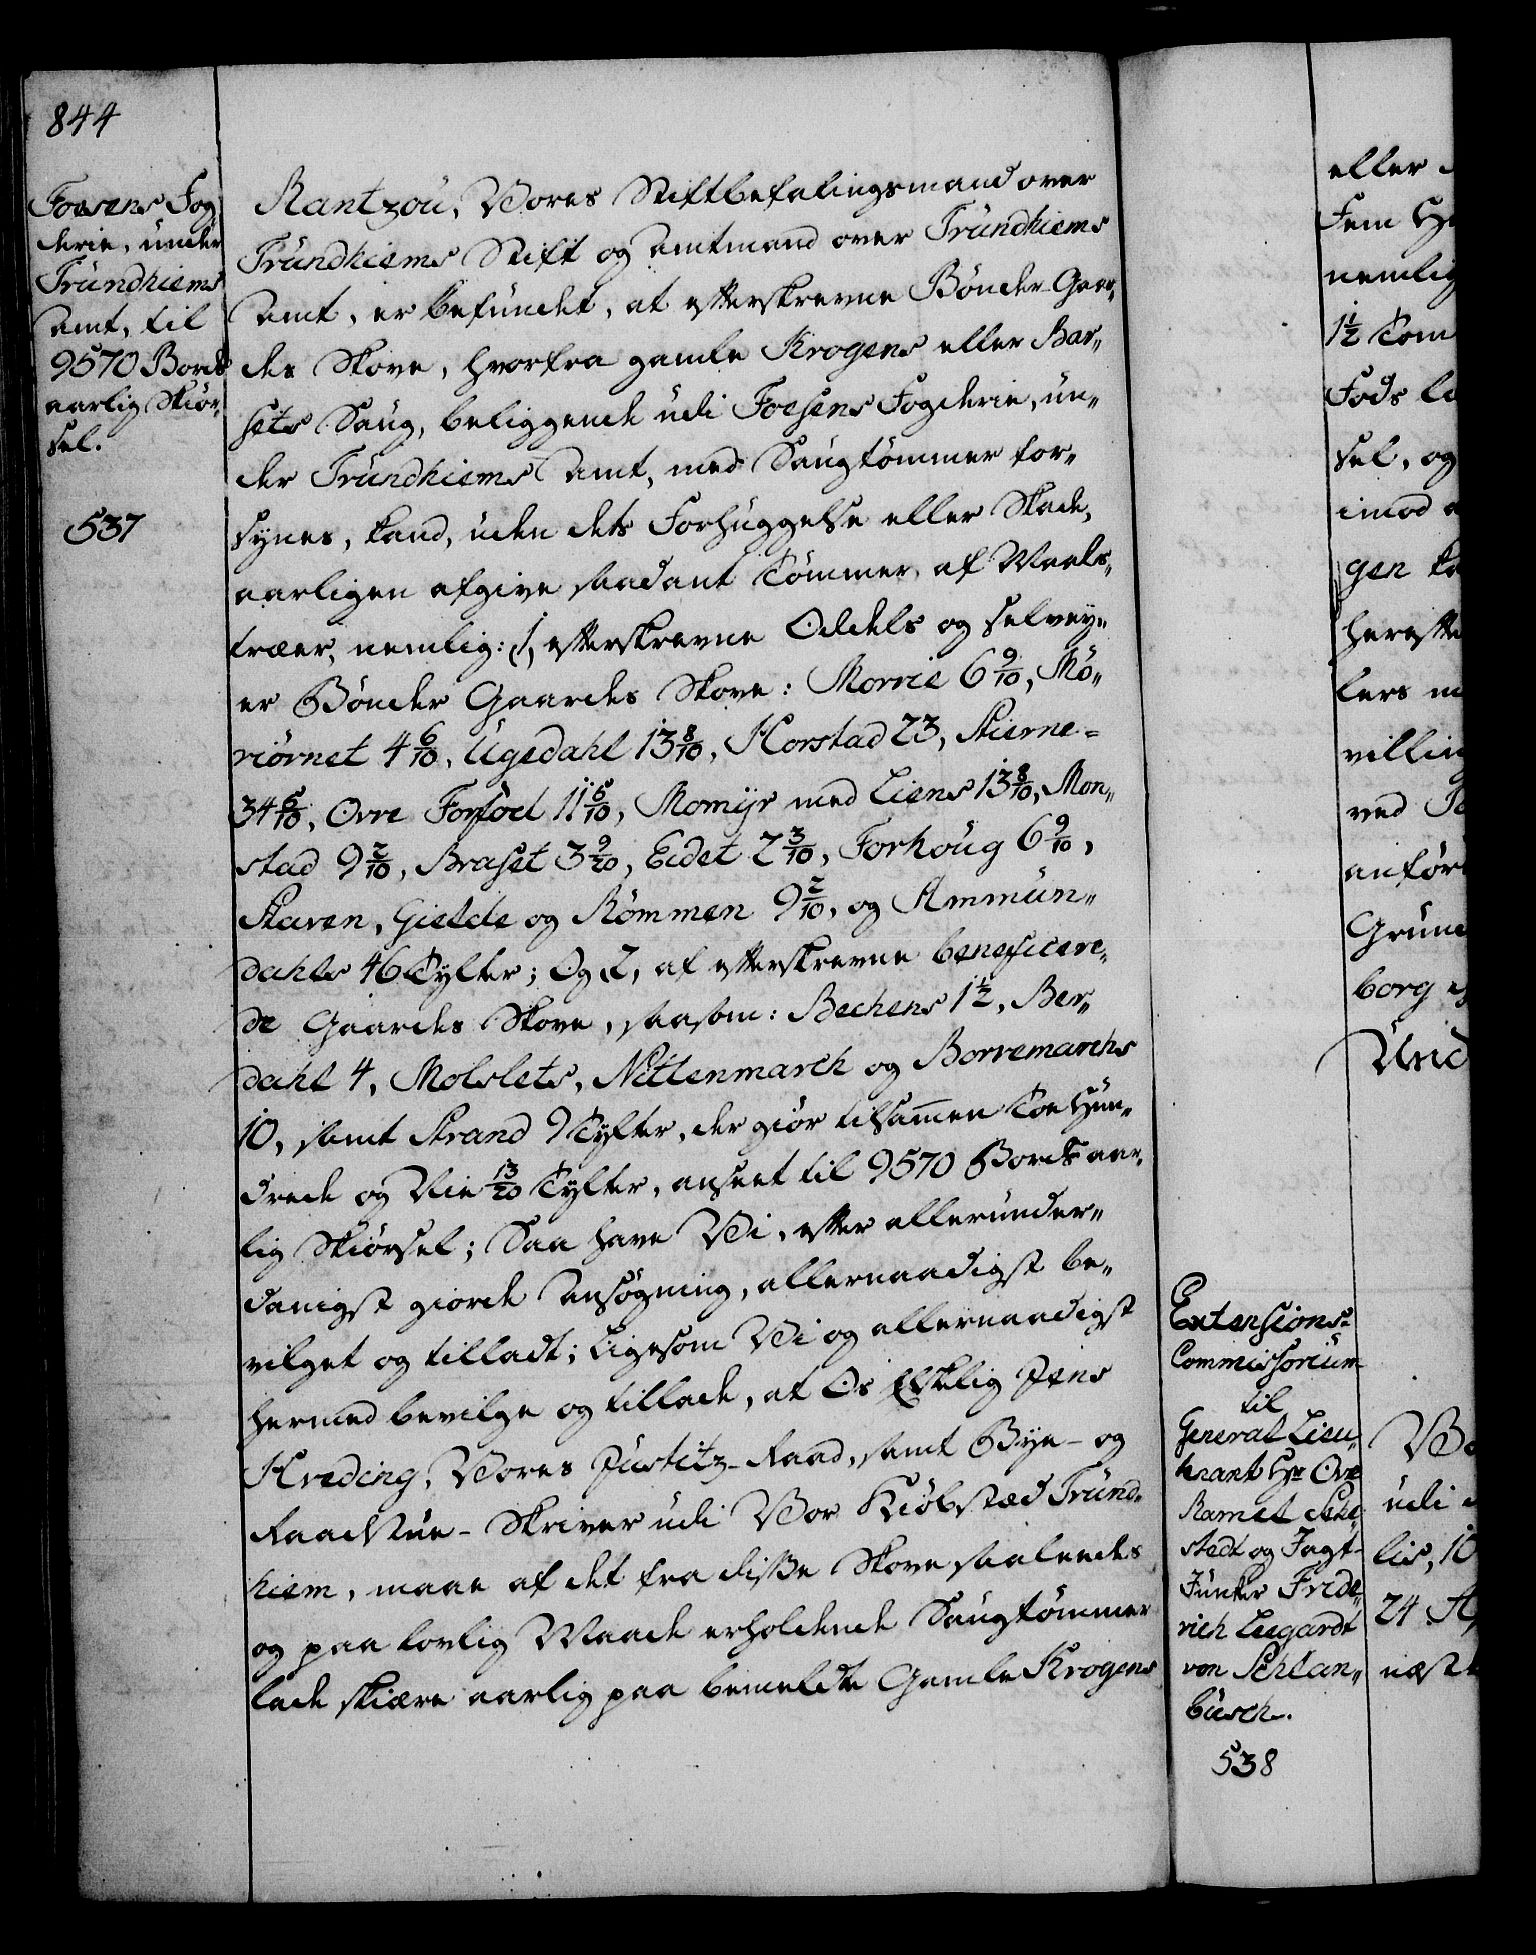 844
Foesens Fog
derie, under
Trundhiems
Amt, til
9570 Bords
aarlig Skiør„
sel.
537
Rantzou, Vores Stiftbefalingsmand over
Trundhiems Stift og Amtmand over Trundhiems
Amt, er befundet, at efterskrevne Bønder-Gaar„
des Skove, hvorfra gamle Krogens eller Bar„
sets Saug, beliggende udi Foesens Fogderie, un„
der Trundhiems Amt, med Saugtømmer for„
synes, kand, uden dets Forhuggelse eller Skade,
aarligen afgive saadant Tømmer, af Maals„
træer, nemlig: 1, efterskrevne Oddels og selvey„
er Bønder Gaardes Skove: Morrie 6 9/10, Mö„
riörnet 4 6/10, Ugedahl 13 8/10, Horstad 23, Stierne-
34 5/10, Ovre Forsöel 11 5/10, Momyr med Liens 13 8/10, Mon„
stad 9 2/10, Braset 3 9/20, Eidet 2 3/10, Forhoug 6 9/10,
Staven, Gielde og Römmen 9 2/10, og Ammun„
dahls 46 Tylter; Og 2, af efterskrevne beneficere„
de Gaardes Skove, saasom: Bechens 1 1/2, Ber„
dahl 4, Molslets, Nettenmarch og Borremarchs
10, samt Strand 9 Tylter, der giør tilsamen Toe Hun„
drede og Nie 13/20 Tylter, anseet til 9570 Bords aar„
lig Skiørsel; Saa have Vi, efter allerunder„
danigst giorde Ansøgning, allernaadigst be„
vilget og tilladt; Ligesom Vi og allernaadigst
hermed bevilge og tillade, at Os Elskelig Jens
Hveding, Vores Justitz-Raad, samt Bye- og
Raadstue-Skriver udi Vor Kiøbstæd Trund„
hiem, maae af det fra disse Skove saaledes
og paa lovlig Maade erholdende Saugtømmer
lade skiære aarlig paa bemeldte Gamle Krogens
Extensions-
Commissorium
til
General Lieu„
tenant Hr Ove
Ramel Sehe„
stedt og Jagt-
Junker Fride„
rich Liegardt
von Schlan„
busch.
538
eller
Fem
nemlig
1 1/2 Tom
Fods
sel, og
imod
gen
herefte
lers
villin
ved
anför
Grun
borg
Und
udi
lis, 10
24
næst